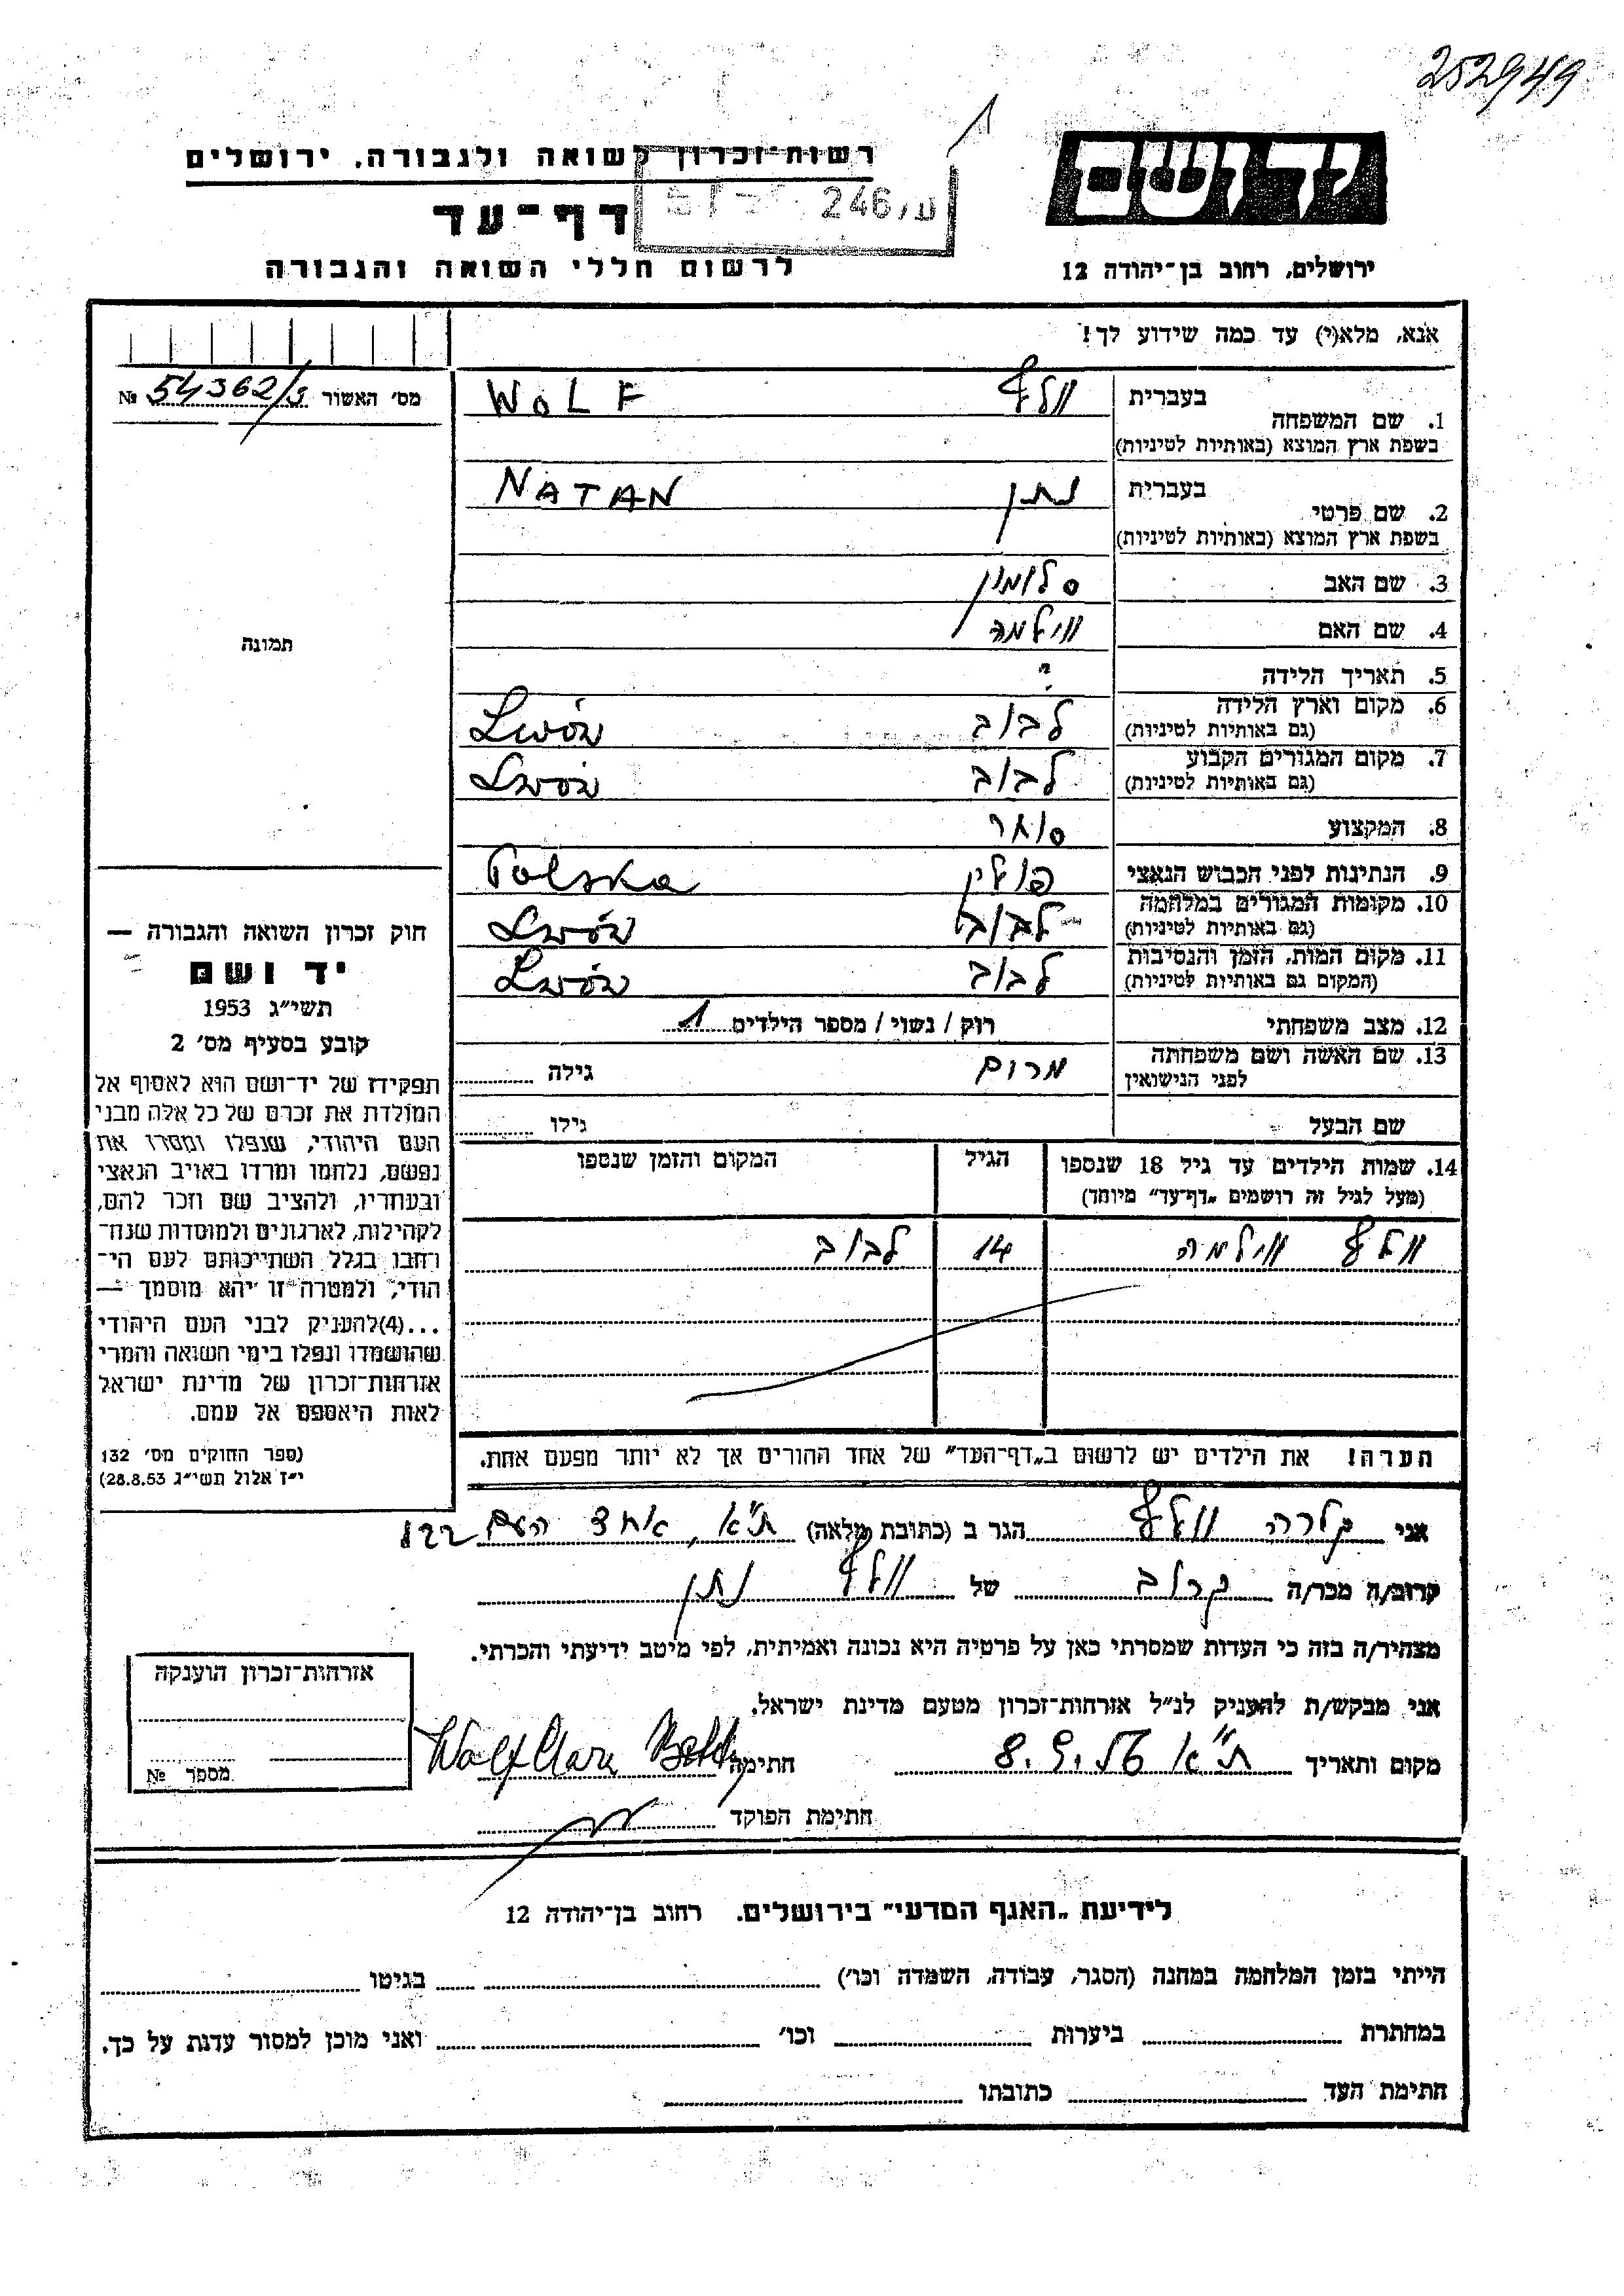 252949
רשות־זכרון לשואה ולגבורה, ירושלים
יד ושם
246/ע
דף־עד
לרשום חללי השואה והגבורה
ירושלים, רחוב בן־יהודה 12
אנא, מלא(י) עד כמה שידוע לך!
מס׳ האשור № 54362/3
1. שם המשפחה בעברית וולף WOLF
בשפת ארץ המוצא (באותיות לטיניות)
2. שם פרטי בעברית נתן NATAN
בשפת ארץ המוצא (באותיות לטיניות)
3. שם האב סלומון
4. שם האם ווילמה
תמונה
5. תאריך הלידה ?
6. מקום וארץ הלידה לבוב Lwów
(גם באותיות לטיניות)
7. מקום המגורים הקבוע לבוב Lwów
(גם באותיות לטיניות)
8. המקצוע סוחר
9. הנתינות לפני הכבוש הנאצי פולין Polska
10. מקומות המגורים במלחמה לבוב Lwów
(גם באותיות לטיניות)
11. מקום המות, הזמן והנסיבות לבוב Lwów
(המקום גם באותיות לטיניות)
12. מצב משפחתי רוק / נשוי / מספר הילדים 1
13. שם האשה ושם משפחתה מרום גילה
לפני הנישואין
שם הבעל גילו
14. שמות הילדים עד גיל 18 שנספו הגיל המקום והזמן שנספו
(מעל לגיל זה רושמים „דף־עד״ מיוחד)
וולף ווילמה 14 לבוב
הערה! את הילדים יש לרשום ב„דף־העד״ של אחד ההורים אך לא יותר מפעם אחת.
חוק זכרון השואה והגבורה —
יד ושם
תשי״ג 1953
קובע בסעיף מס׳ 2
תפקידו של יד־ושם הוא לאסוף אל
המולדת את זכרם של כל אלה מבני
העם היהודי, שנפלו ומסרו את
נפשם, נלחמו ומרדו באויב הנאצי
ובעוזריו, ולהציב שם וזכר להם,
לקהילות, לארגונים ולמוסדות שנח־
רחבו בגלל השתייכותם לעם הי־
הודי, ולמטרה זו יהא מוסמך —
...(4)להעניק לבני העם היהודי
שהושמדו ונפלו בימי השואה והמרי
אזרחות־זכרון של מדינת ישראל
לאות היאספם אל עמם.
(ספר החוקים מס׳ 132
י״ז אלול תשי״ג 28.8.53)
אני קלרה וולף הגר ב (כתובת מלאה) ת״א, אחד העם 122
קרוב/ה מכר/ה קרוב של וולף נתן
מצהיר/ה בזה כי העדות שמסרתי כאן על פרטיה היא נכונה ואמיתית, לפי מיטב ידיעתי והכרתי.
אני מבקש/ת להעניק לנ״ל אזרחות־זכרון מטעם מדינת ישראל.
מקום ותאריך ת״א 8.9.56 חתימה Wolf Clara
חתימת הפוקד
אזרחות־זכרון הוענקה
מספר №
לידיעת „האגף המדעי״ בירושלים, רחוב בן־יהודה 12
הייתי בזמן המלחמה במחנה (הסגר, עבודה, השמדה וכו׳) בגיטו
במחתרת ביערות וכו׳ ואני מוכן למסור עדות על כך.
חתימת העד כתובתו